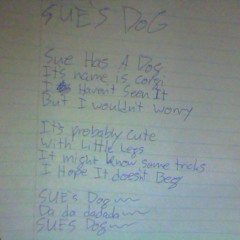 SUE'S DOG
Sue Has A Dog
It's name is corgi
I Haven't Seen It
But I wouldn't worry
It's probably cute
With Little Legs
It might know some tricks
I Hope It doesn't Beg
SUE'S Dog~~
Da da dadada~
SUES Dog~~